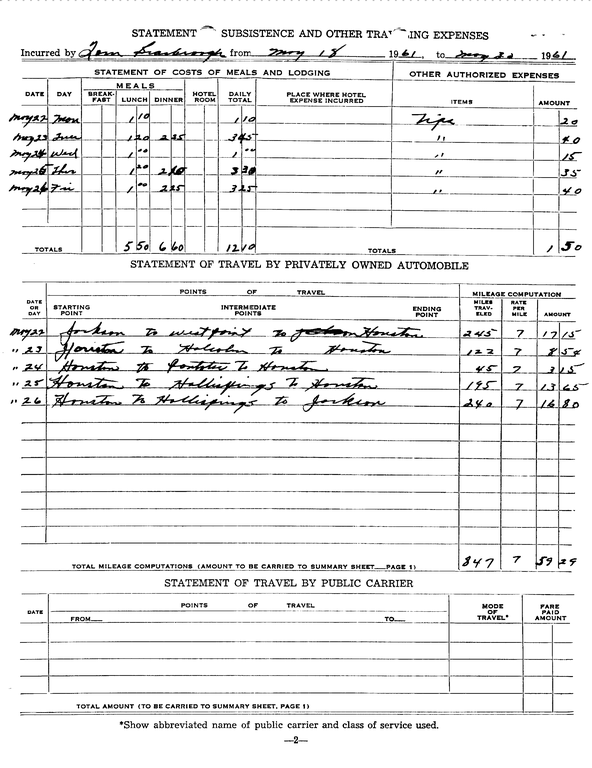 STATEMENT SUBSISTENCE AND OTHER TRAV ING EXPENSES
Incurred by Tom Scarbrough from May 18 1961, to May 30 1961
STATEMENT OF COSTS OF MEALS AND LODGING OTHER AUTHORIZED EXPENSES
MEALS
DATE DAY BREAK-FAST LUNCH DINNER HOTEL ROOM DAILY TOTAL PLACE WHERE HOTEL EXPENSE INCURRED ITEMS AMOUNT
May 22 Mon 1 10 1 10 Tips 20
May 23 Tues 1 20 2 25 3 45 " 40
May 24 Wed 1 00 1 00 " 15
May 25 Thur 1 20 2 10 3 30 " 35
May 26 Fri 1 00 2 25 3 25 " 40
TOTALS 5 50 6 60 12 10 TOTALS 1 50
STATEMENT OF TRAVEL BY PRIVATELY OWNED AUTOMOBILE
POINTS OF TRAVEL MILEAGE COMPUTATION
DATE OR DAY STARTING POINT INTERMEDIATE POINTS ENDING POINT MILES TRAV-ELED RATE PER MILE AMOUNT
May 22 Jackson to Westpoint to Houston 245 7 17 15
" 23 Houston to Holcolm to Houston 122 7 8 54
" 24 Houston to Pontotoc to Houston 45 7 3 15
" 25 Houston to Hollisprings to Houston 195 7 13 65
" 26 Houston to Hollisprings to Jackson 240 7 16 80
TOTAL MILEAGE COMPUTATIONS (AMOUNT TO BE CARRIED TO SUMMARY SHEET—PAGE 1) 847 7 59 29
STATEMENT OF TRAVEL BY PUBLIC CARRIER
DATE POINTS OF TRAVEL MODE OF TRAVEL* FARE PAID AMOUNT
FROM— TO—
TOTAL AMOUNT (TO BE CARRIED TO SUMMARY SHEET, PAGE 1)
*Show abbreviated name of public carrier and class of service used.
—2—